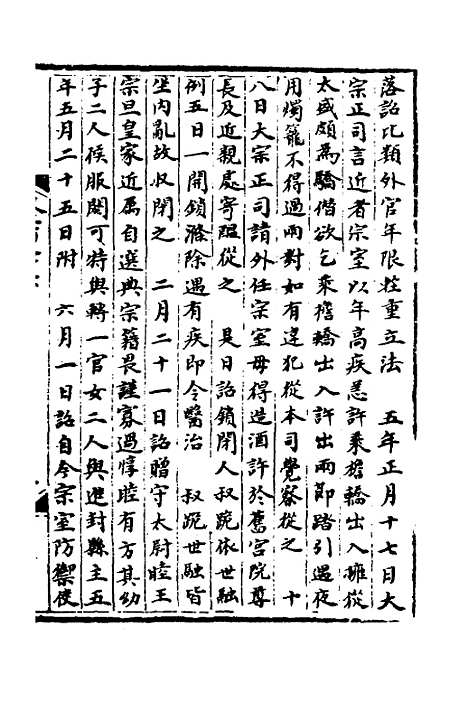 落詔比類外官年限從重立法　五年正月十七日大
宗正司言近者宗室以年高疾恙許乘檐轎出入擁從
太盛頗為驕僭欲乞乘檐轎出入許出兩節踏引遇夜
用燭籠不得過兩對如有違犯從本司覺察從之　十
八日大宗正司請外任宗室毋得造酒許於舊宮院尊
長及近親處寄醞從之　是日詔鎖閉人叔跪依世融
例五日一開鎖滌除遇有疾即令醫治　叔跪世融皆
坐內亂故収閉之　二月二十一日詔贈守太尉睦王
宗旦皇家近属自選典宗籍畏謹寡過惇睦有方其幼
子二人候服闋可特與轉一官女二人與進封縣主五
年五月二十五日附　六月一日詔自今宗室防禦使